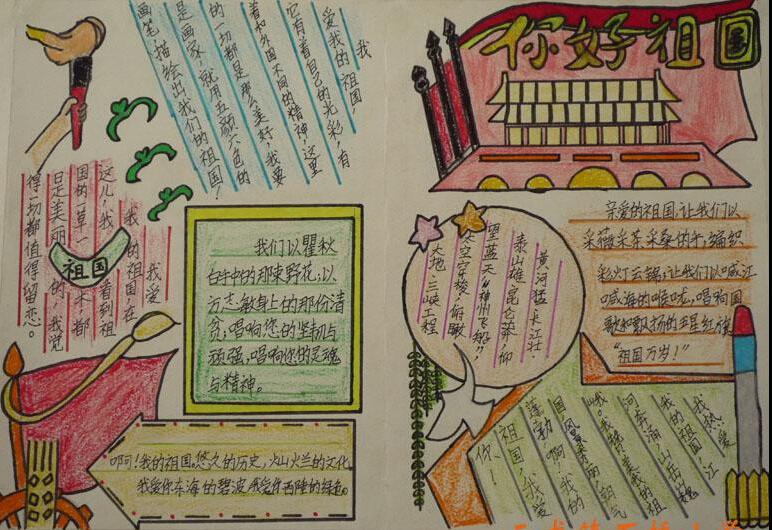 你好祖国
我
爱我的祖国,
它有着自己的光彩,有
着和外国不同的精神,这里
的一切都是那么美好,我要
是画家,就用五颜六色的
画笔描绘出我们的祖国!
我爱
我的祖国,在
这儿,我看到祖
国的一草一木,都
是美丽的,我觉
得一切都值得留恋。
祖国
我们以瞿秋
白手中的那束野花;以
方志敏身上的那份清
贫;唱响您的坚韧与
顽强,唱响你的灵魂
与精神。
啊!我的祖国。悠久的历史,火山火兰的文化。
我爱你东海的碧波
黄河猛,长江壮
泰山雄,昆仑莽,仰
望蓝天“神州飞船”
太空穿梭,俯瞰
大地,三峡工程
亲爱的祖国,让我们以
采薇采茶采桑的手,编织
彩灯云锦;让我们以喊江
喊海的喉咙,唱响国
歌和飘扬的五星红旗
“祖国万岁!”
我热爱
我的祖国
江河奔涌,山岳巍
我的祖
国
我的
祖国,我爱
你!